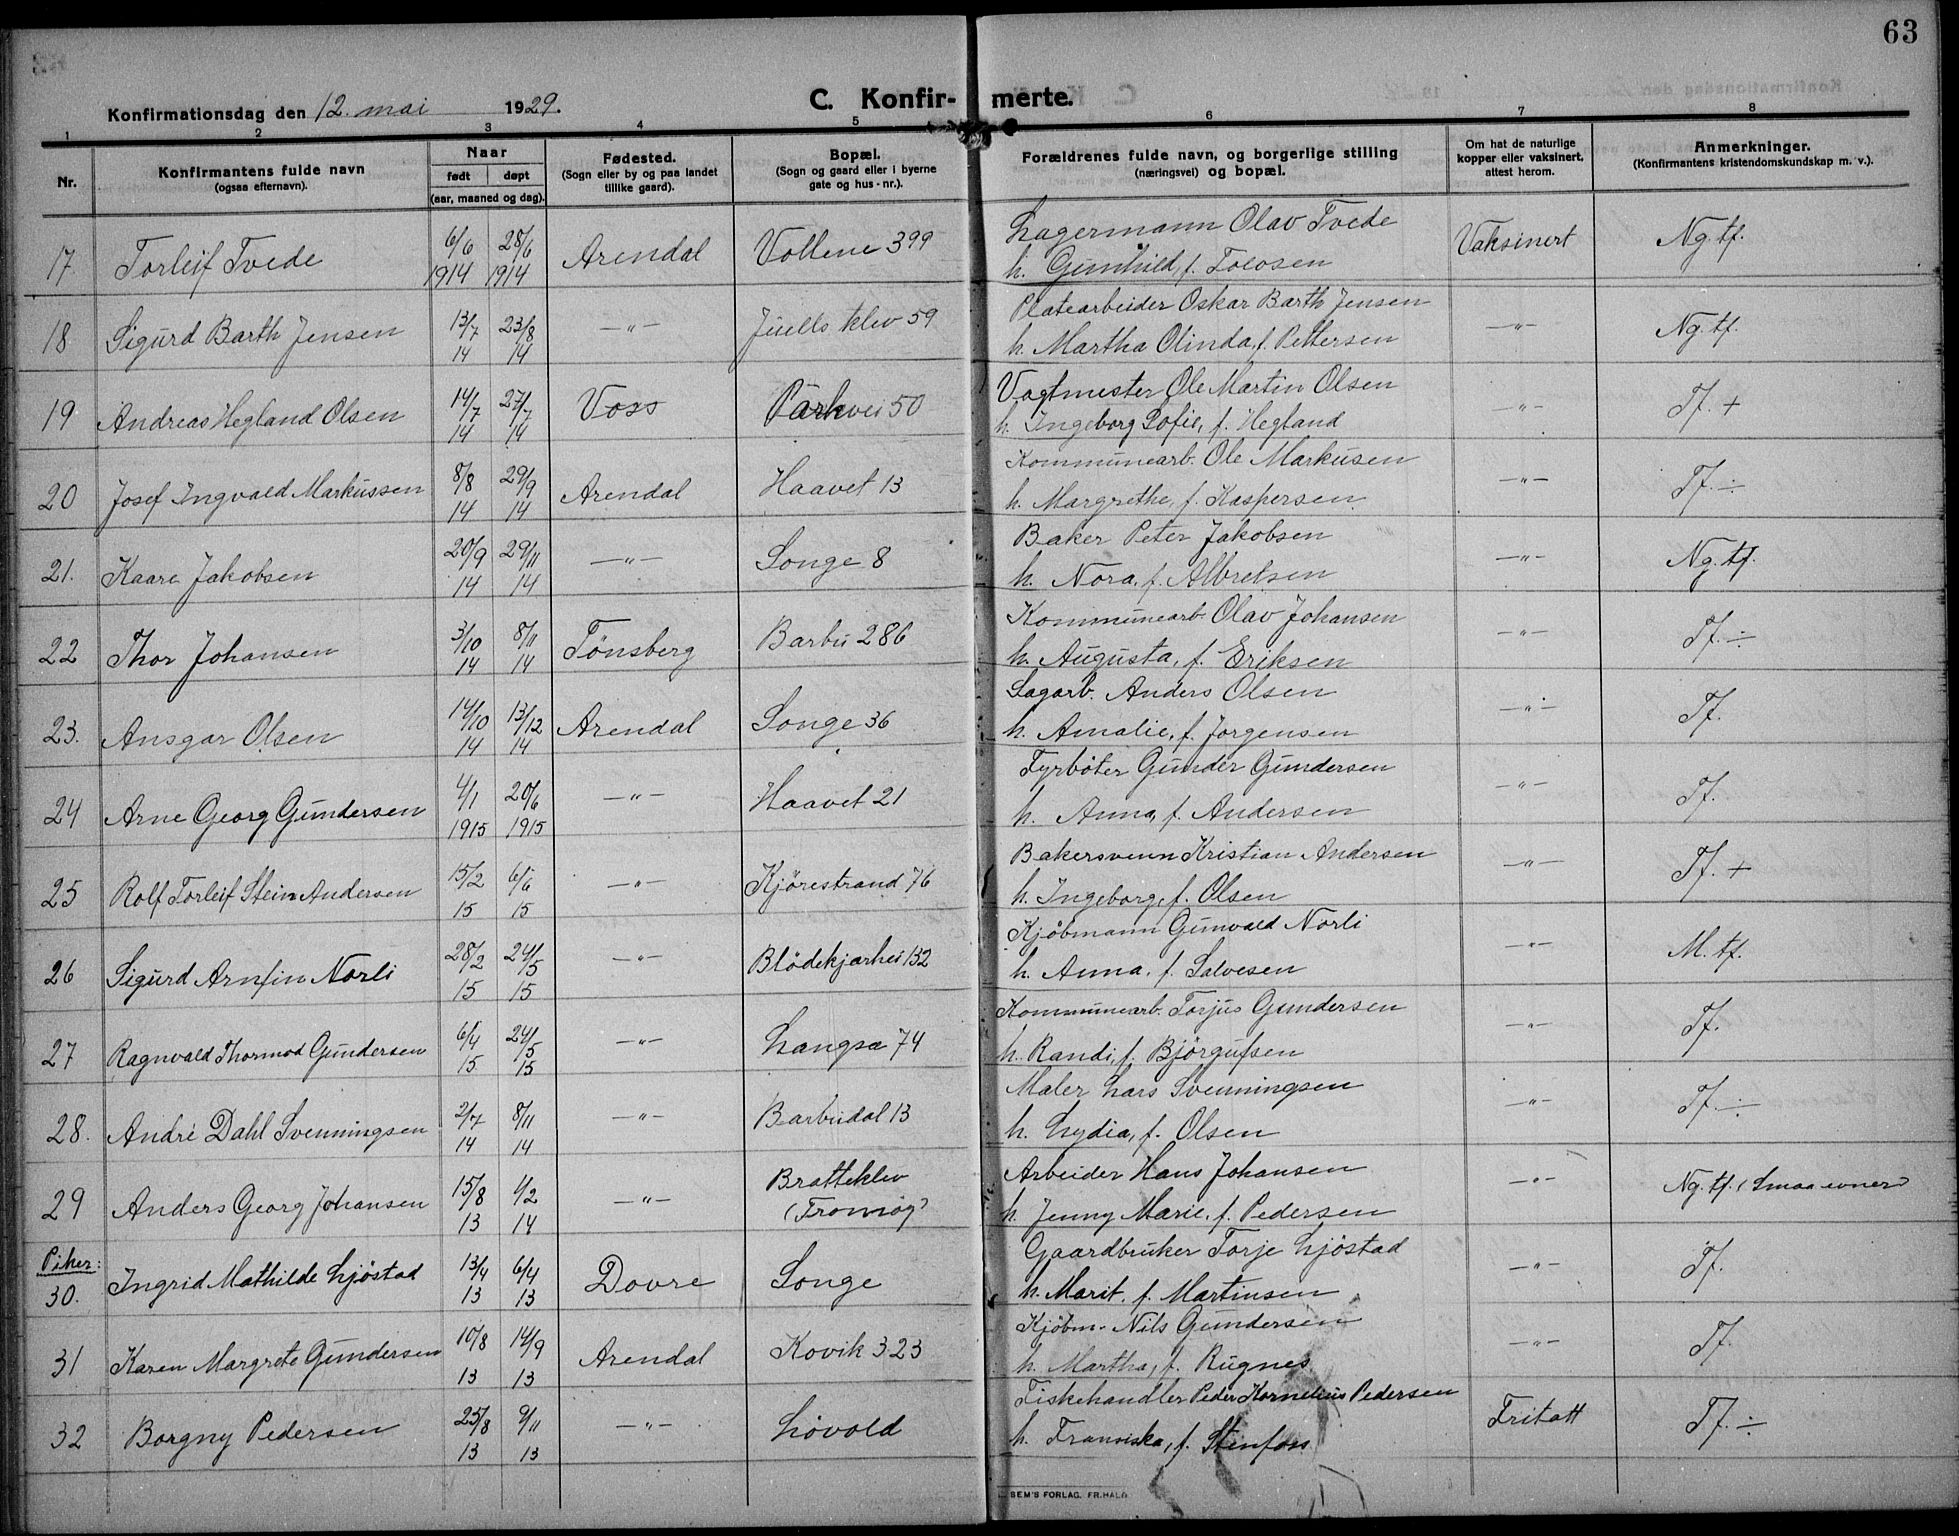 63
Konfirmationsdag den 12. mai 1929.
C. Konfir- merte.
1 2 3 4 5 6 7 8
Nr.
Konfirmantens fulde navn
(ogsaa efternavn).
Naar
født døpt
(aar, maaned og dag).
Fødested.
(Sogn eller by og paa landet
tillike gaard).
Bopæl.
(Sogn og gaard eller i byerne
gate og hus-nr.).
Forældrenes fulde navn, og borgerlige stilling
(næringsvei) og bopæl.
Om hat de naturlige
kopper eller vaksinert,
attest herom.
Anmerkninger.
(Konfirmantens kristendomskundskap m. v.).
17. Torleif Tvede 6/6 1914 28/6 1914 Arendal Vollene 399 Lagermann Olav Tvede
h. Gunhild, f. Tolosen Vaksinert Ng. tf.
18 Sigurd Barth Jensen 13/7 14 23/8 14 —"— Juells klev 59 Platearbeider Oskar Barth Jensen
h. Martha Olinda, f. Pettersen —"— Ng. tf.
19 Andreas Hegland Olsen 14/7 14 27/7 14 Voss Parkvei 50 Vagtmester Ole Martin Olsen
h. Ingeborg Sofie, f. Hegland —"— Tf. +
20 Josef Ingvald Markussen 8/8 14 29/9 14 Arendal Haavet 13 Kommunearb. Ole Markusen
h. Margrethe, f. Kaspersen —"— Tf. ÷
21. Kaare Jakobsen 20/9 14 29/11 14 —"— Songe 8 Baker Peter Jakobsen
h. Nora, f. Albretsen —"— Ng. tf.
22 Thor Johansen 3/10 14 8/11 14 Tønsberg Barbu 286 Kommunearb. Olav Johansen
h. Augusta, f. Eriksen —"— Tf. ÷
23. Ansgar Olsen 14/10 14 13/12 14 Arendal Songe 36 Sagarb. Anders Olsen
h. Amalie, f. Jørgensen —"— Tf.
24 Arne Georg Gundersen 4/1 1915 20/6 1915 —"— Haavet 21 Fyrbøter Gunder Gundersen
h. Anna, f. Andersen —"— Tf.
25 Rolf Torleif Stein Andersen 15/2 15 6/6 15 —"— Kjörestrand 76 Bakersvenn Kristian Andersen
h. Ingeborg, f. Olsen —"— Tf. +
26 Sigurd Arnfin Norli 28/2 15 24/5 15 —"— Blödekjærhei 132 Kjöbmann Gunvald Norli
h. Anna, f. Salvesen —"— M. tf.
27 Ragnvald Thormod Gundersen 6/4 15 24/5 15 —"— Langsæ 74 Kommunearb. Torjus Gundersen
h. Randi, f. Björgufsen —"— Tf.
28. André Dahl Svenningsen 2/7 14 8/11 14 —"— Barbudal 13 Maler Lars Svenningsen
h. Lydia, f. Olsen —"— Tf. ÷
29 Anders Georg Johansen 15/8 13 1/2 14 —"— Bratteklev
(Tromöy) Arbeider Hans Johansen
h. Jenny Marie, f. Pedersen —"— Ng. tf. (Smaa evner)
Piker:
30. Ingrid Mathilde Ljöstad 13/4 13 6/4 13 Dovre Songe Gaardbruker Torje Ljöstad
h. Marit, f. Martinsen —"— Tf.
31 Karen Margrete Gundersen 10/8 13 14/9 13 Arendal Kovik 323 Kjöbm. Nils Gundersen
h. Martha, f. Rugnes —"— Tf.
32 Borgny Pedersen 25/8 13 9/11 13 —"— Lövold Fiskehandler Peder Kornelius Pedersen
h. Fransiska, f. Stenfoss Fritatt Tf. ÷
SEM'S FORLAG. FR.HALD